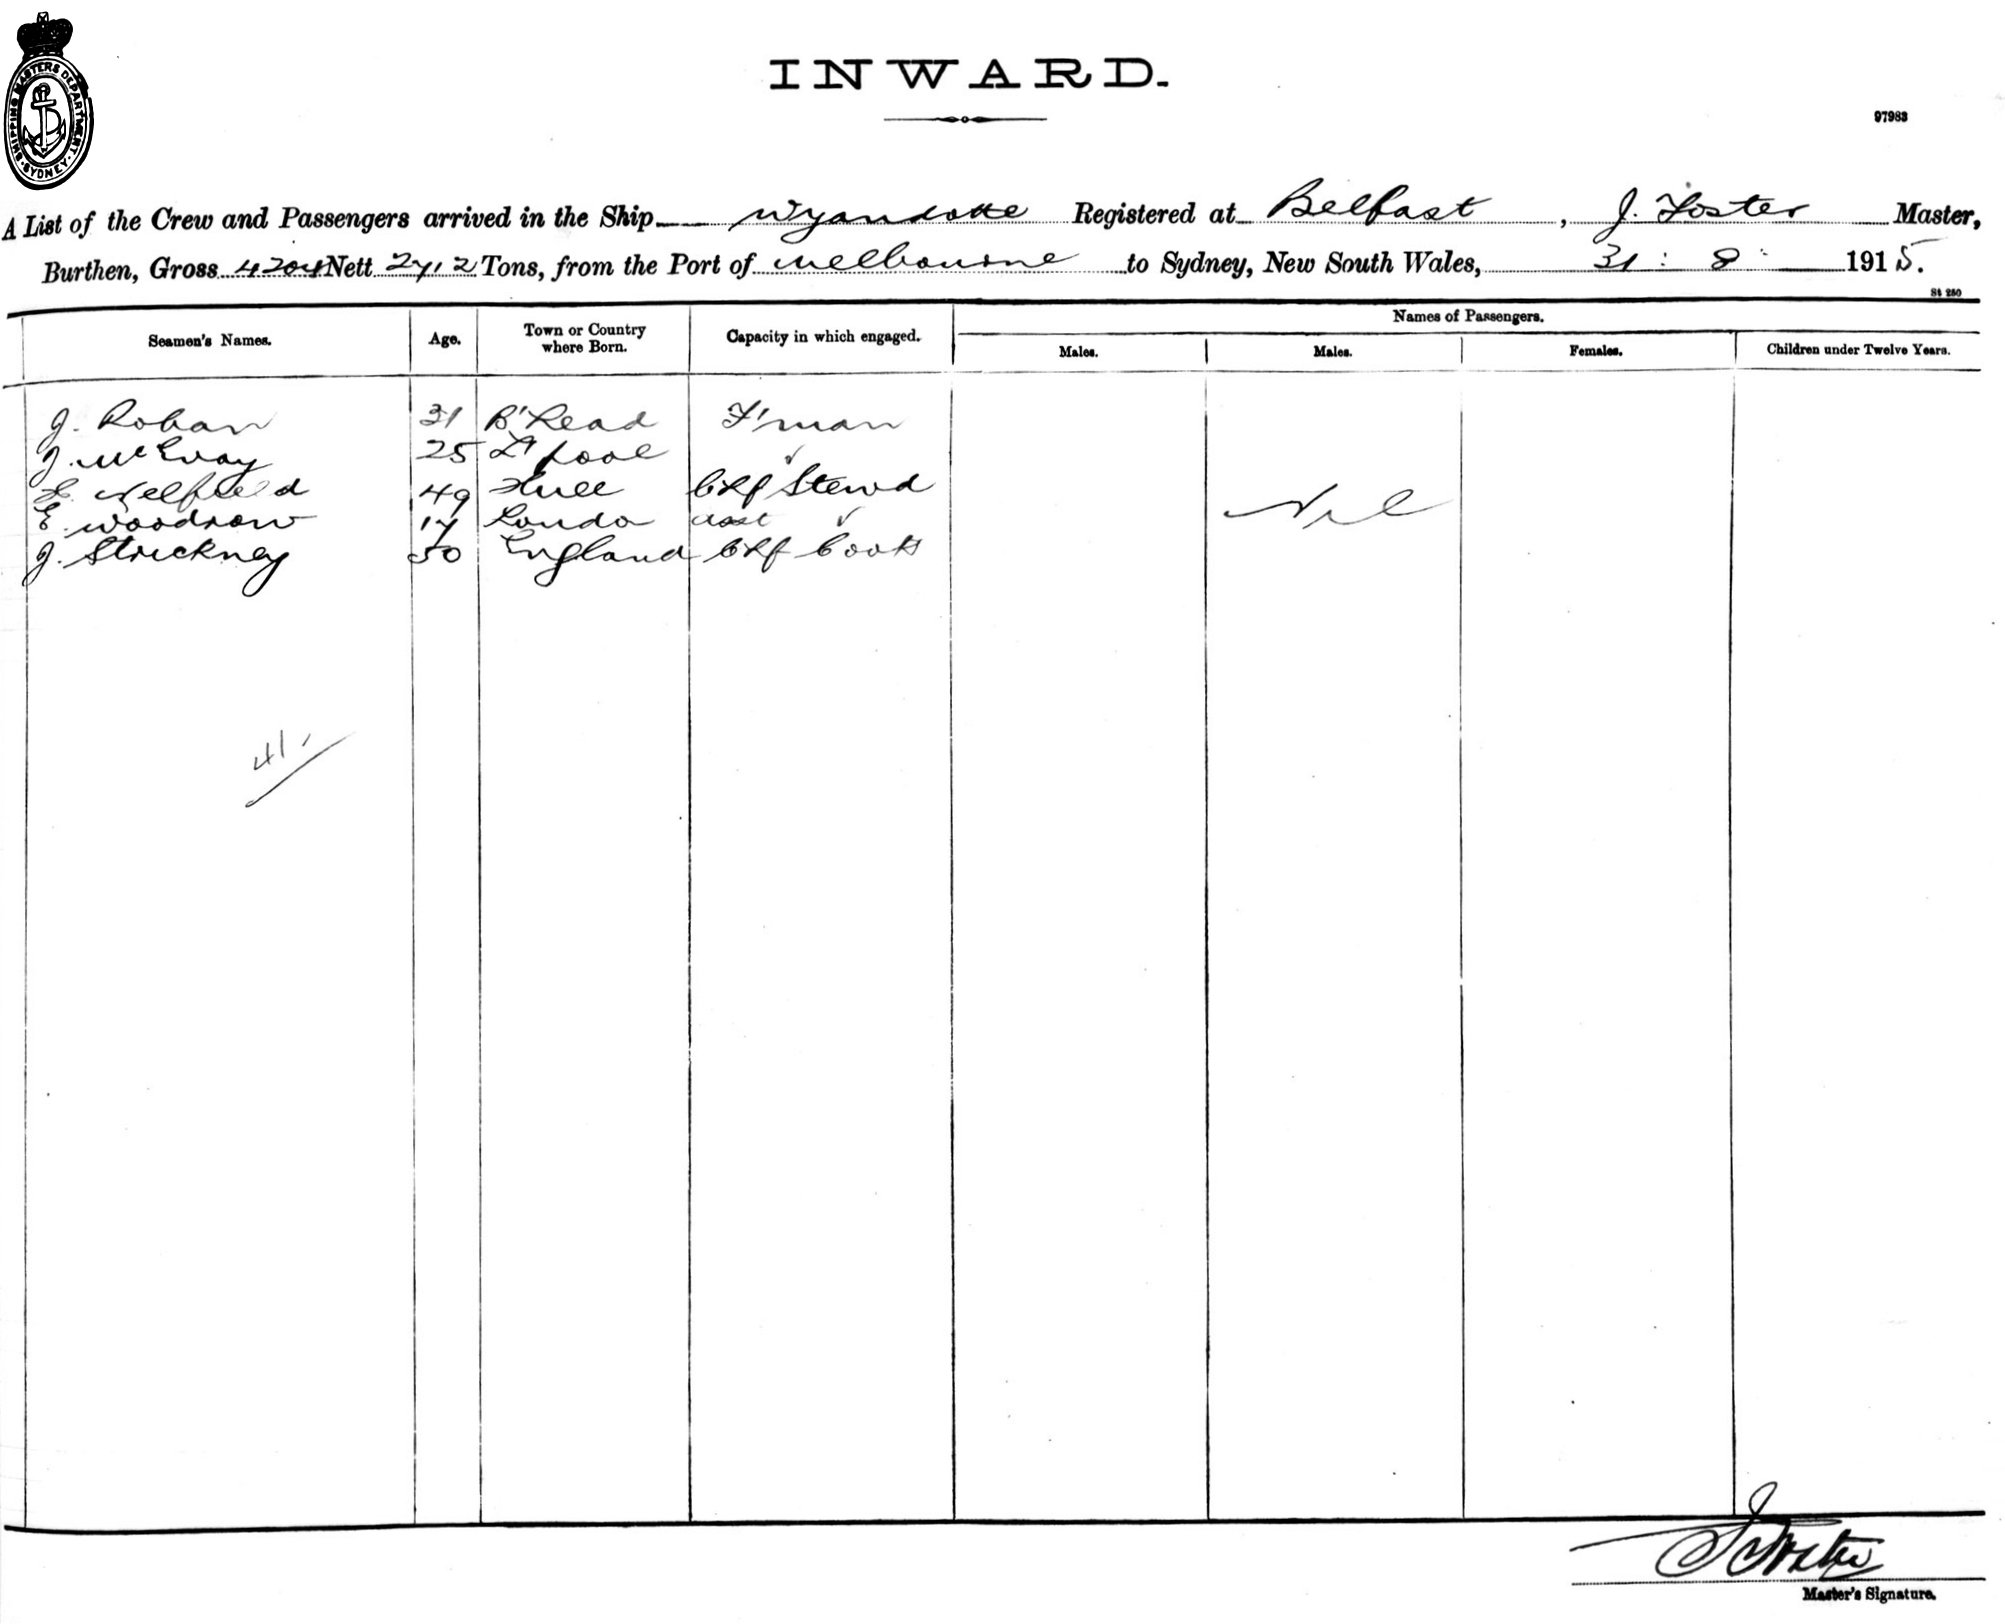 SHIPPING MASTERS DEPARTMENT · SYDNEY ·
INWARD.
97983
A List of the Crew and Passengers arrived in the Ship Wyandotte Registered at Belfast, J. Foster Master,
Burthen, Gross 4204 Nett 2712 Tons, from the Port of Melbourne to Sydney, New South Wales, 31 : 8 : 1915.
St 250
Seamen's Names. Age. Town or Country where Born. Capacity in which engaged. Names of Passengers.
Males. Males. Females. Children under Twelve Years.
J. Roban 31 B'Head F'man
J. McEvoy 25 L'pool ✓
E. Welfield 49 Hull Chf Stewd
E. Woodrow 17 Londo asst ✓
J. Strickney 50 England Chf Cook
Nil
41
J Foster
Master's Signature.